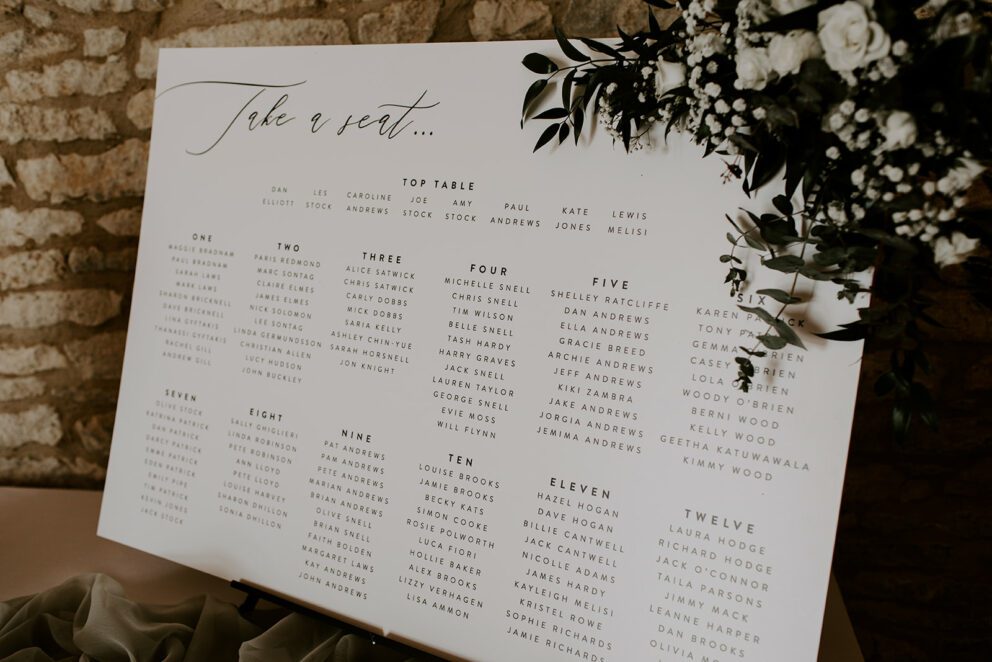 Take a seat...
TOP TABLE
DAN ELLIOTT
LES STOCK
CAROLINE ANDREWS
JOE STOCK
AMY STOCK
PAUL ANDREWS
KATE JONES
LEWIS MELISI
ONE
MAGGIE BRADNAM
PAUL BRADNAM
SARAH LAWS
MARK LAWS
SHARON BRICKNELL
DAVE BRICKNELL
LINA GYFTAKIS
THANASSI GYFTAKIS
RACHEL GILL
ANDREW GILL
TWO
PARIS REDMOND
MARC SONTAG
CLAIRE ELMES
JAMES ELMES
NICK SOLOMON
LEE SONTAG
LINDA GERMUNDSSON
CHRISTIAN ALLEN
LUCY HUDSON
JOHN BUCKLEY
THREE
ALICE SATWICK
CHRIS SATWICK
CARLY DOBBS
MICK DOBBS
SARIA KELLY
ASHLEY CHIN-YUE
SARAH HORSNELL
JON KNIGHT
FOUR
MICHELLE SNELL
CHRIS SNELL
TIM WILSON
BELLE SNELL
TASH HARDY
HARRY GRAVES
JACK SNELL
LAUREN TAYLOR
GEORGE SNELL
EVIE MOSS
WILL FLYNN
FIVE
SHELLEY RATCLIFFE
DAN ANDREWS
ELLA ANDREWS
GRACIE BREED
ARCHIE ANDREWS
JEFF ANDREWS
KIKI ZAMBRA
JAKE ANDREWS
JORGIA ANDREWS
JEMIMA ANDREWS
SIX
KAREN
TONY
GEMMA O'BRIEN
CASEY O'BRIEN
LOLA O'BRIEN
WOODY O'BRIEN
BERNI WOOD
KELLY WOOD
GEETHA KATUWAWALA
KIMMY WOOD
SEVEN
OLIVE STOCK
KATRINA PATRICK
DAN PATRICK
DARCY PATRICK
EMME PATRICK
EDEN PATRICK
EMILY PIPE
TIM PATRICK
KEVIN JONES
JACK STOCK
EIGHT
SALLY GHIGLIERI
LINDA ROBINSON
PETE ROBINSON
ANN LLOYD
PETE LLOYD
LOUISE HARVEY
SHARON DHILLON
SONIA DHILLON
NINE
PAT ANDREWS
PAM ANDREWS
PETE ANDREWS
MARIAN ANDREWS
BRIAN ANDREWS
OLIVE SNELL
BRIAN SNELL
FAITH BOLDEN
MARGARET LAWS
KAY ANDREWS
JOHN ANDREWS
TEN
LOUISE BROOKS
JAMIE BROOKS
BECKY KATS
SIMON COOKE
ROSIE POLWORTH
LUCA FIORI
HOLLIE BAKER
ALEX BROOKS
LIZZY VERHAGEN
LISA AMMON
ELEVEN
HAZEL HOGAN
DAVE HOGAN
BILLIE CANTWELL
JACK CANTWELL
NICOLLE ADAMS
JAMES HARDY
KAYLEIGH MELISI
KRISTEL ROWE
SOPHIE RICHARDS
JAMIE RICHARDS
TWELVE
LAURA HODGE
RICHARD HODGE
JACK O'CONNOR
TAILA PARSONS
JIMMY MACK
LEANNE HARPER
DAN BROOKS
OLIVIA